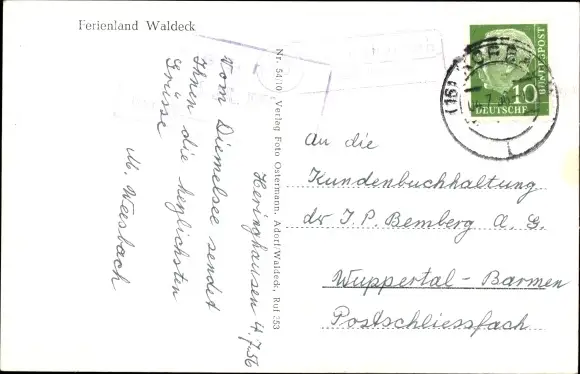 Ferienland Waldeck
Heringhausen 4.7.56
Vom Diemelsee sendet
Ihnen die herzlichsten
Grüsse
M. Weisbach
Nr. 54/10 Verlag Foto Ostermann, Adorf/Waldeck, Ruf 353
DEUTSCHE
BUNDESPOST
10
(16)
An die
Kundenbuchhaltung
der J. P. Bemberg A. G.
Wuppertal - Barmen
Postschliessfach